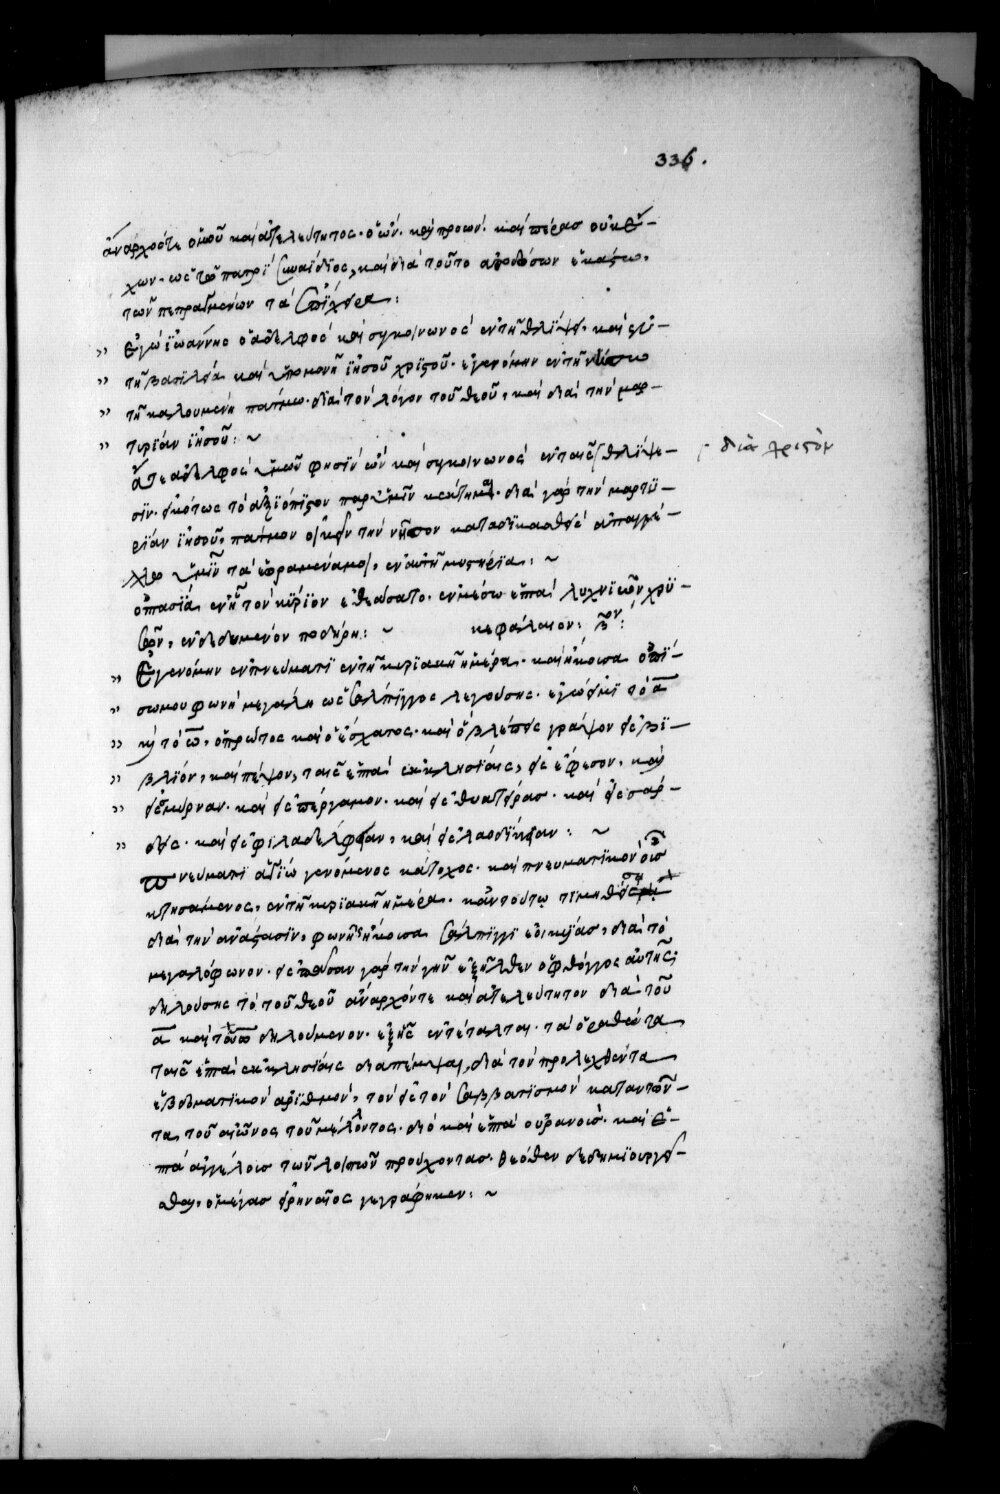 336.
ἄναρχός τε ὁμοῦ καὶ ἀτελεύτητος· ὁ ὤν· καὶ προών· καὶ πέρας οὐκ ἔ-
χων· ὡς τῷ πατρὶ συναΐδιος, καὶ διὰ τοῦτο ἀποδώσων ἑκάστῳ,
τῶν πεπραγμένων τὰ ἐπίχειρα:
" Ἐγὼ ἰωάννης ὁ ἀδελφὸς καὶ συγκοινωνὸς ἐν τῇ θλίψει· καὶ ἐν
" τῇ βασιλείᾳ καὶ ὑπομονῇ ἰησοῦ χριστοῦ· ἐγενόμην ἐν τῇ νήσῳ
" τῇ καλουμένη πάτμω· διὰ τὸν λόγον τοῦ θεοῦ, καὶ διὰ τὴν μαρ-
" τυρίαν ἰησοῦ: ~
ἅτε ἀδελφὸς ὑμῶν φησὶν ὢν καὶ συγκοινωνὸς ἐν ταῖς θλίψε-
διὰ χριστὸν
σιν· εἰκότως τὸ ἀξιόπιστον παρ' ὑμῖν κέκτημαι· διὰ γὰρ τὴν μαρτυ-
ρίαν ἰησοῦ, πάτμον οἰκεῖν τὴν νῆσον καταδικασθεὶς ἀπαγγέ-
λλω ὑμῖν τὰ ἑωραμένα μοι, ἐν αὐτῇ μυστήρια: ~
ὀπτασία ἐν ᾗ τὸν κύριον ἐθεάσατο· ἐν μέσω ἑπτὰ λυχνιῶν χρυ-
σῶν, ἐνδεδυμένον ποδήρη: ~ κεφάλαιον: βον:
" Ἐγενόμην ἐν πνεύματι ἐν τῇ κυριακῇ ἡμέρα· καὶ ἤκουσα ὀπί-
" σω μου φωνὴ μεγάλη ὡς σάλπιγγος λεγούσης· ἐγώ εἰμι τὸ α
" καὶ τὸ ω, ὁ πρῶτος καὶ ὁ ἔσχατος· καὶ ὃ βλέπεις γράψον εἰς βι-
" βλίον, καὶ πέμψον, ταῖς ἑπτὰ ἐκκλησίαις, εἰς ἔφεσον, καὶ
" εἰς σμύρναν· καὶ εἰς πέργαμον· καὶ εἰς θυάτειρας· καὶ εἰς σάρ-
" δεις· καὶ εἰς φιλαδέλφειαν, καὶ εἰς λαοδίκειαν: ~
Πνεύματι ἁγίω γενόμενος κάτοχος· καὶ πνευματικὸν οὖς
κτησάμενος, ἐν τῇ κυριακῇ ἡμέρα· κἀν τούτῳ τιμηθείση
διὰ τὴν ἀνάστασιν, φωνῆς ἤκουσα σάλπιγγι ἐοικυίας, διὰ τὸ
μεγαλόφωνον· εἰς πᾶσαν γὰρ τὴν γῆν ἐξῆλθεν ὁ φθόγγος αὐτῆς,
δηλούσης τὸ τοῦ θεοῦ ἄναρχόν τε καὶ ἀτελεύτητον διὰ τοῦ
α καὶ τοῦ ω δηλούμενον· ἐξ ἧς ἐντέταλται· τὰ ὁραθέντα
ταῖς ἑπτὰ ἐκκλησίαις διαπέμψαι, διὰ τὸν προλεχθέντα
ἑβδοματικὸν ἀριθμόν, τὸν εἰς τὸν σαββατισμὸν καταντῶν-
τα, τοῦ αἰῶνος τοῦ μέλλοντος· διὸ καὶ ἑπτὰ οὐρανοὺς· καὶ ἑ-
πτὰ ἀγγέλους τῶν λοιπῶν προύχοντας· θεόθεν δεδημιουργεῖ-
σθαι, ὁ μέγας εἰρηναῖος γεγράφηκεν: ~